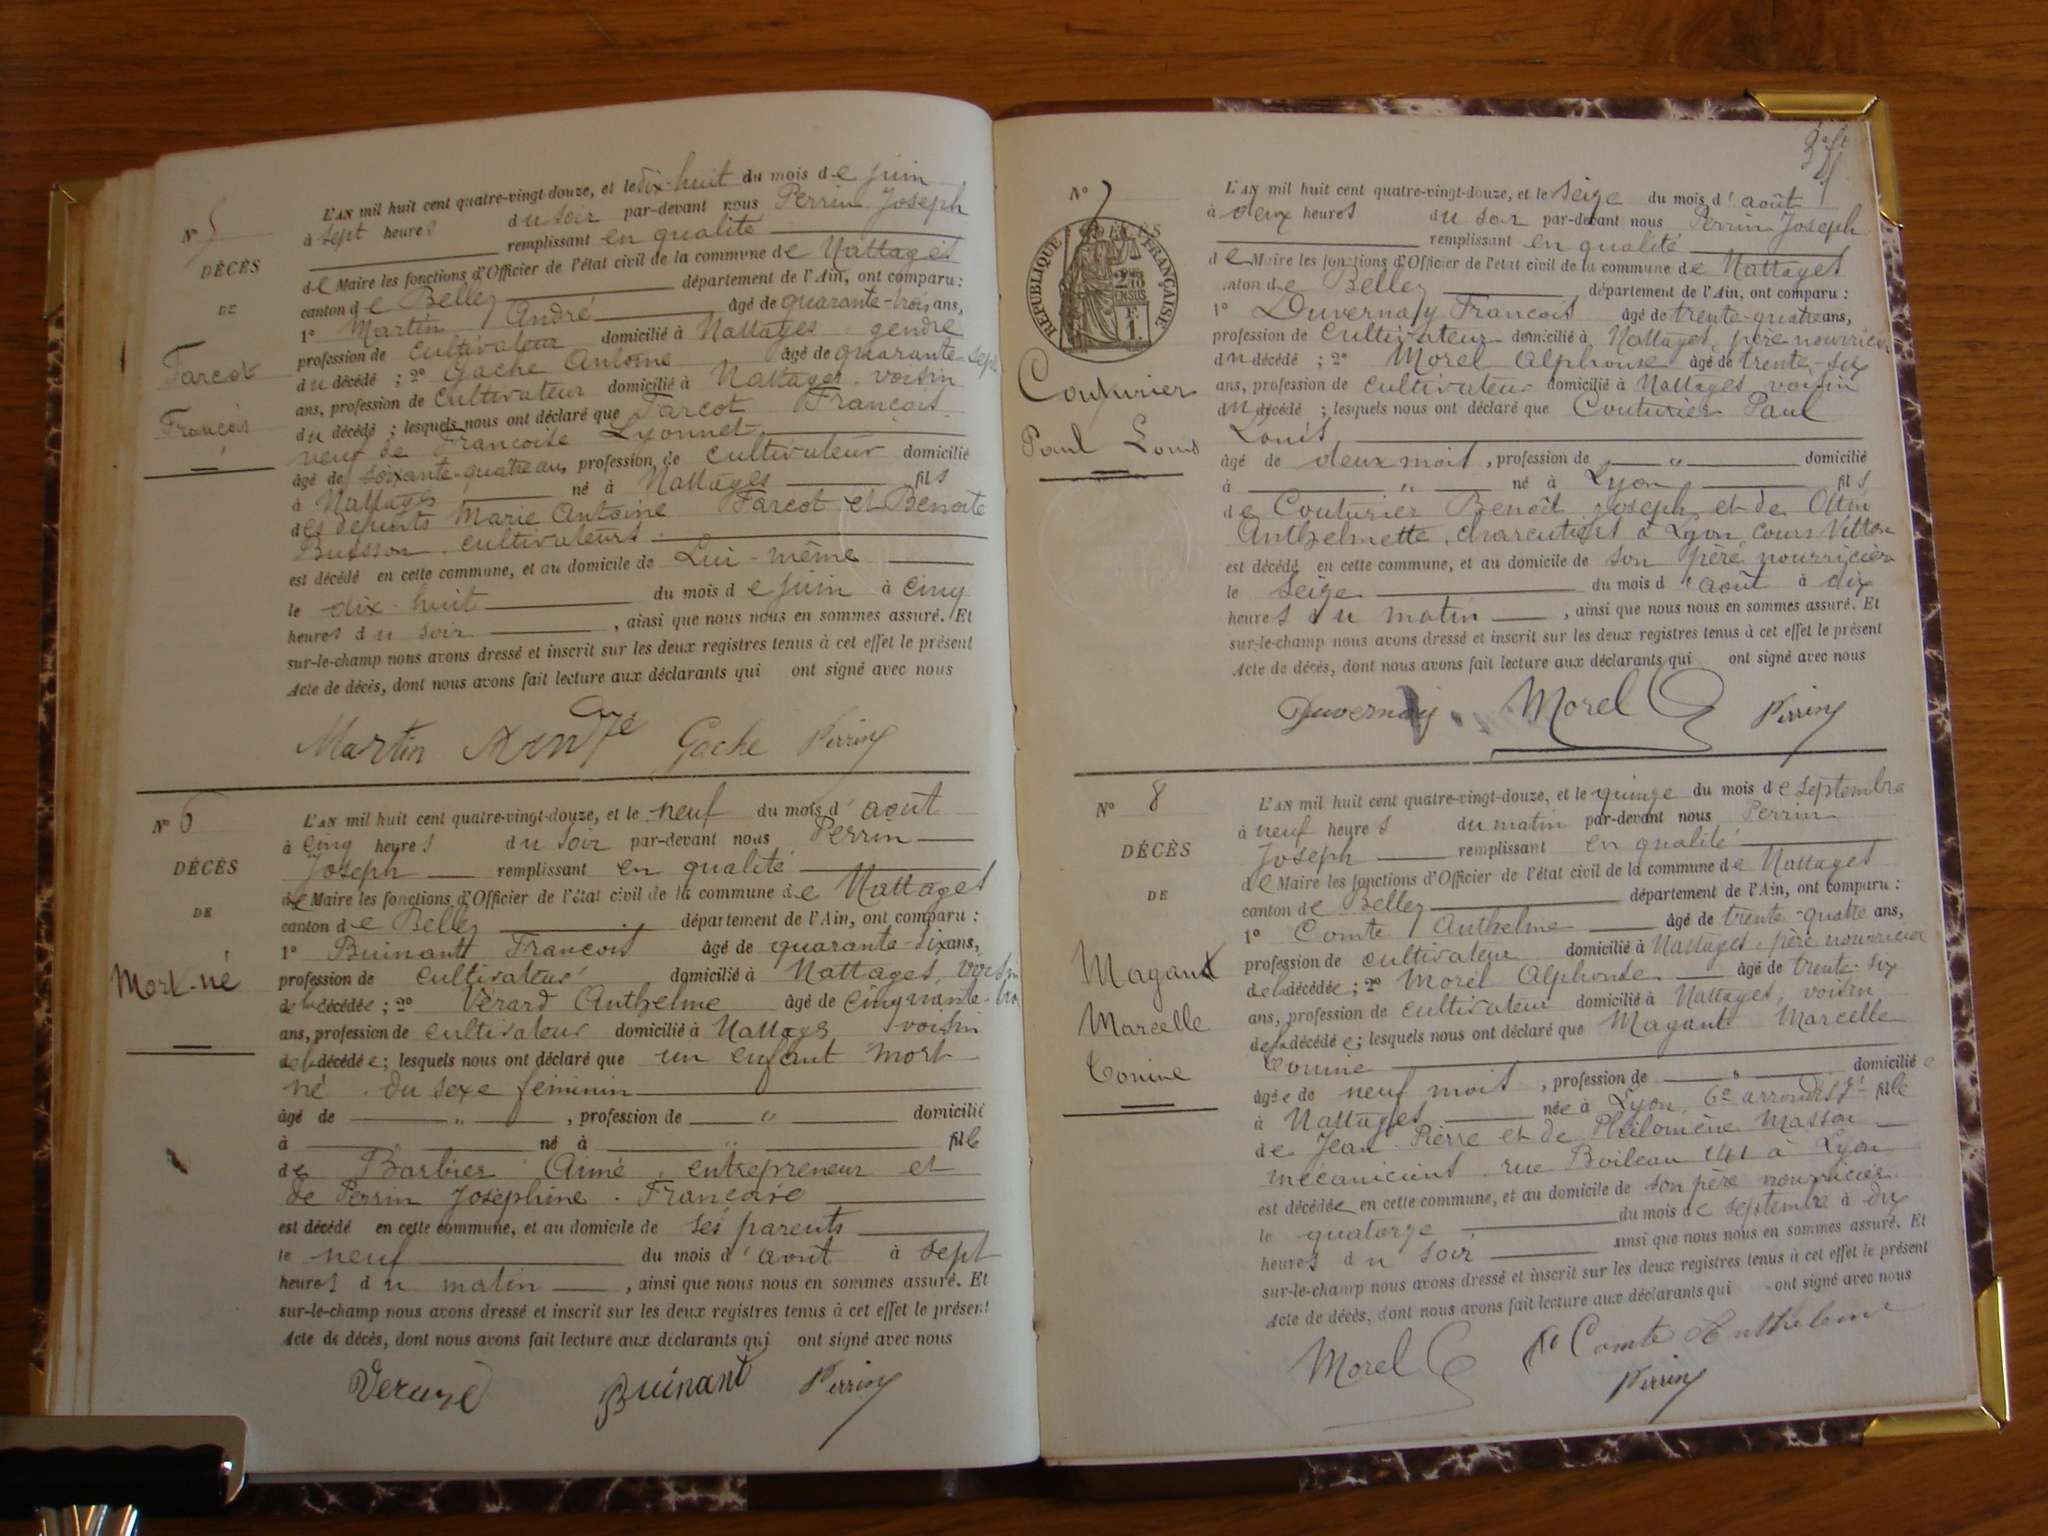 N° 5
DÉCÈS
DE
Farcot
François
L'AN mil huit cent quatre-vingt-douze, et le dix-huit du mois de juin
à sept heures du soir par-devant nous Perrin Joseph
remplissant en qualité
de Maire les fonctions d'Officier de l'état civil de la commune de Nattages
canton de Belley département de l'Ain, ont comparu :
1° Martin André âgé de quarante-trois ans,
profession de cultivateur domicilié à Nattages, gendre
du décédé ; 2° Gache Antoine âgé de quarante-sept
ans, profession de cultivateur domicilié à Nattages, voisin
du décédé ; lesquels nous ont déclaré que Farcot François
veuf de Françoise Lyonnet
âgé de soixante-quatre ans, profession de cultivateur domicilié
à Nattages né à Nattages fils
des défunts Marie Antoine Farcot et Benoite
Buisson, cultivateurs
est décédé en cette commune, et au domicile de Lui-même
le dix-huit du mois de juin à cinq
heures du soir, ainsi que nous nous en sommes assuré. Et
sur-le-champ nous avons dressé et inscrit sur les deux registres tenus à cet effet le présent
Acte de décès, dont nous avons fait lecture aux déclarants qui ont signé avec nous
Martin André Gache Perrin
N° 6
DÉCÈS
DE
Mort-né
L'AN mil huit cent quatre-vingt-douze, et le neuf du mois d'août
à cinq heures du soir par-devant nous Perrin
Joseph remplissant en qualité
de Maire les fonctions d'Officier de l'état civil de la commune de Nattages
canton de Belley département de l'Ain, ont comparu :
1° Buinant François âgé de quarante-six ans,
profession de cultivateur domicilié à Nattages, voisin
de la décédée ; 2° Vérard Anthelme âgé de cinquante-trois
ans, profession de cultivateur domicilié à Nattages voisin
de la décédée ; lesquels nous ont déclaré que un enfant mort
né du sexe féminin
âgé de " , profession de " domicilié
à né à " fille
de Barbier Aimé, entrepreneur et
de Perrin Joséphine Françoise
est décédé en cette commune, et au domicile de ses parents
le neuf du mois d'août à sept
heures du matin, ainsi que nous nous en sommes assuré. Et
sur-le-champ nous avons dressé et inscrit sur les deux registres tenus à cet effet le présent
Acte de décès, dont nous avons fait lecture aux déclarants qui ont signé avec nous
Verard Buinant Perrin
N° 7
DÉCÈS
RÉPUBLIQUE FRANÇAISE
Couturier
Paul Louis
L'AN mil huit cent quatre-vingt-douze, et le seize du mois d'août
à deux heures du soir par-devant nous Perrin Joseph
remplissant en qualité
de Maire les fonctions d'Officier de l'état civil de la commune de Nattages
canton de Belley département de l'Ain, ont comparu :
1° Duvernay François âgé de trente-quatre ans,
profession de cultivateur domicilié à Nattages, père nourricier
du décédé ; 2° Morel Alphonse âgé de trente-six
ans, profession de cultivateur domicilié à Nattages, voisin
du décédé ; lesquels nous ont déclaré que Couturier Paul
Louis
âgé de deux mois, profession de " domicilié
à " né à Lyon fils
de Couturier Benoît Joseph et de Ottin
Anthelmette, charcutiers à Lyon, cours Vitton
est décédé en cette commune, et au domicile de son père nourricier
le seize du mois d'août à dix
heures du matin, ainsi que nous nous en sommes assuré. Et
sur-le-champ nous avons dressé et inscrit sur les deux registres tenus à cet effet le présent
Acte de décès, dont nous avons fait lecture aux déclarants qui ont signé avec nous
Duvernay Morel Perrin
N° 8
DÉCÈS
DE
Magant
Marcelle
Tonine
L'AN mil huit cent quatre-vingt-douze, et le quinze du mois de septembre
à neuf heures du matin par-devant nous Perrin
Joseph remplissant en qualité
de Maire les fonctions d'Officier de l'état civil de la commune de Nattages
canton de Belley département de l'Ain, ont comparu :
1° Comte Anthelme âgé de trente-quatre ans,
profession de cultivateur domicilié à Nattages, père nourricier
de la décédée ; 2° Morel Alphonse âgé de trente-six
ans, profession de cultivateur domicilié à Nattages, voisin
de la décédée ; lesquels nous ont déclaré que Magant Marcelle
Tonine
âgée de neuf mois, profession de " domiciliée
à Nattages née à Lyon, 6e arrondisst fille
de Jean Pierre et de Philomène Masson
mécaniciens, rue Boileau 141 à Lyon
est décédée en cette commune, et au domicile de son père nourricier
le quatorze du mois de septembre à dix
heures du soir ainsi que nous nous en sommes assuré. Et
sur-le-champ nous avons dressé et inscrit sur les deux registres tenus à cet effet le présent
Acte de décès, dont nous avons fait lecture aux déclarants qui ont signé avec nous
Morel Comte Anthelme
Perrin